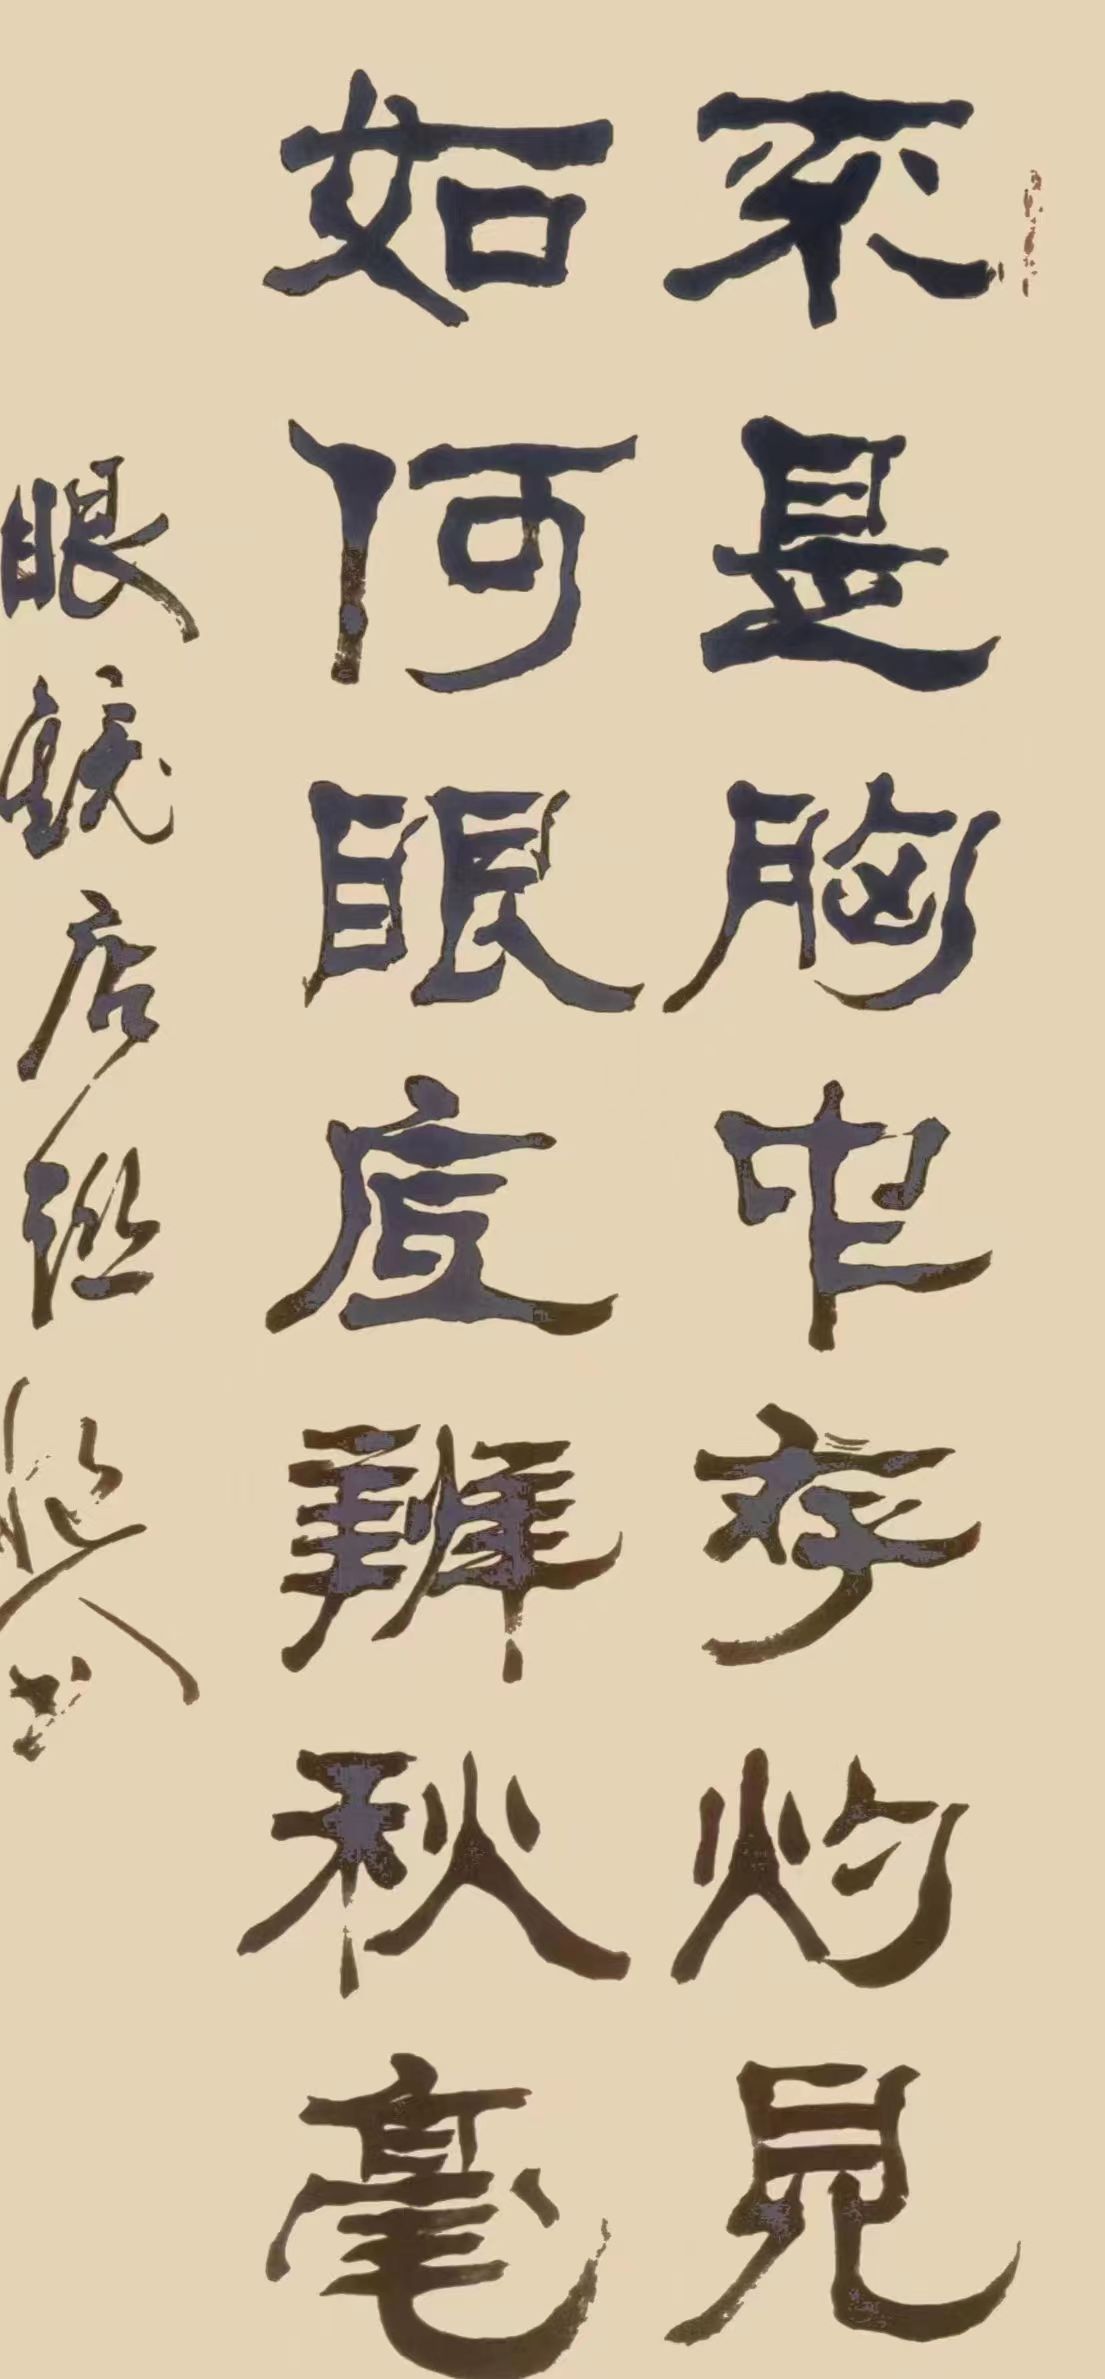 不是胸中存灼見
如何眼底辨秋毫
眼鏡店聯